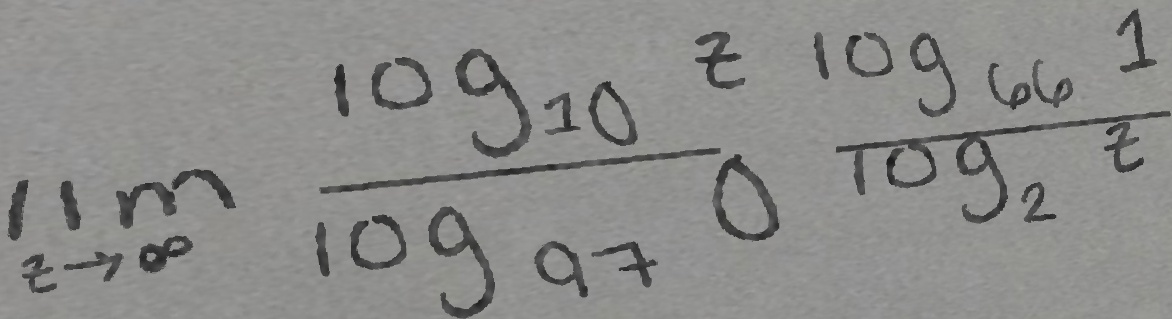 \lim_{z \to \infty} \frac{\log_{10} z}{\log_{97} 0} \frac{\log_{66} 1}{\log_{2} z}